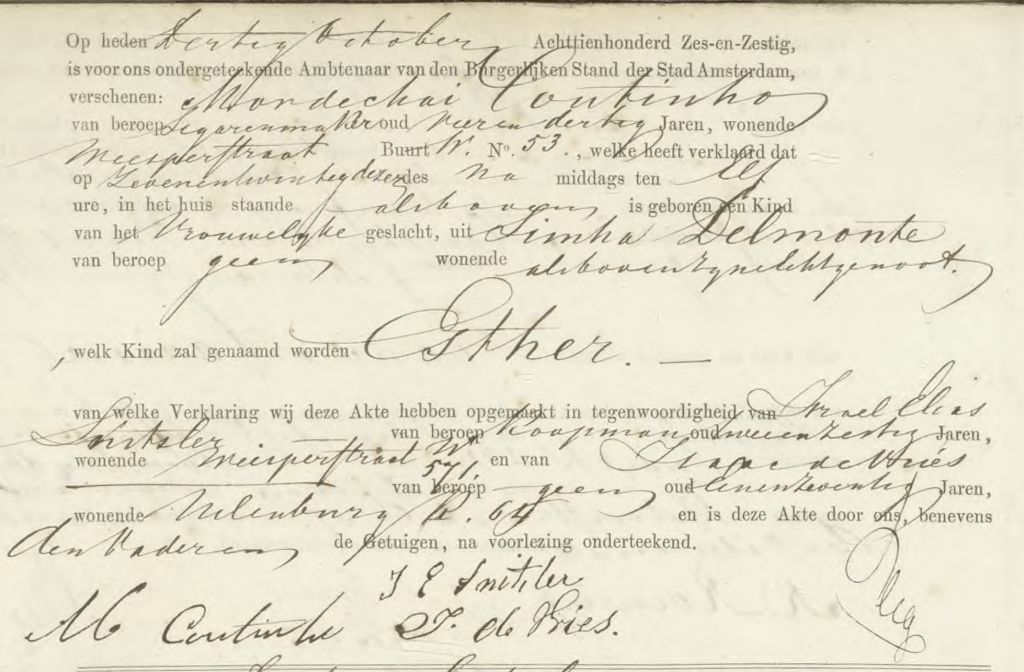 Op heden Dertig October Achttienhonderd Zes-en-Zestig,
is voor ons ondergeteekende Ambtenaar van den Burgerlijken Stand der Stad Amsterdam,
verschenen: Mordechai Coutinho
van beroep Segarenmaker oud Vier en dertig Jaren, wonende
Weesperstraat Buurt W. No. 53., welke heeft verklaard dat
op Zevenentwintig dezer des Na middags ten Elf
ure, in het huis staande alsboven is geboren een Kind
van het Vrouwelijke geslacht, uit Simha Delmonte
van beroep geen wonende alsboven zijne Echtgenoot.
welk Kind zal genaamd worden Esther. —
van welke Verklaring wij deze Akte hebben opgemaakt in tegenwoordigheid van Israel Elias
Snitsler van beroep Koopman oud tweeenzestig Jaren,
wonende Weesperstraat W. 571 en van Isaac de Vries
van beroep geen oud Eenenzeventig Jaren,
wonende Uilenburg R. 64 en is deze Akte door ons, benevens
den Vader en de Getuigen, na voorlezing onderteekend.
J E Snitsler
M Coutinho J. de Vries.